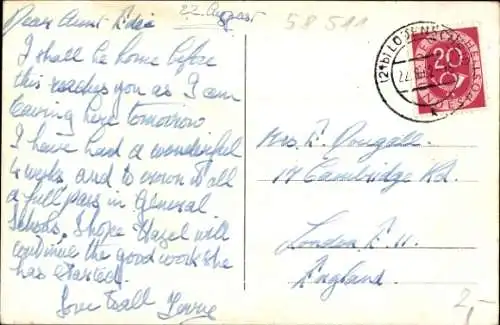 22. August
58 511
Dear Aunt Edie
I shall be home before
this reaches you as I am
leaving here tomorrow
I have had a wonderful
4 weeks and to crown it all
a full pass in General
Schools. I hope Hazel will
continue the good work she
has started.
Love to all
(24b) LO
22.
DEUTSCHE BUNDESPOST
20
Mrs E. Dougall.
14 Cambridge Rd.
London E. 11.
England.
2,-